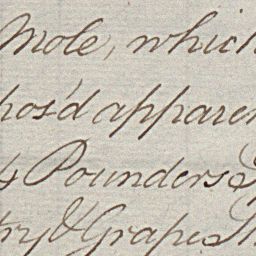 Mole, which
pos'd apparen
4 Pounders &
try & Grape Sh